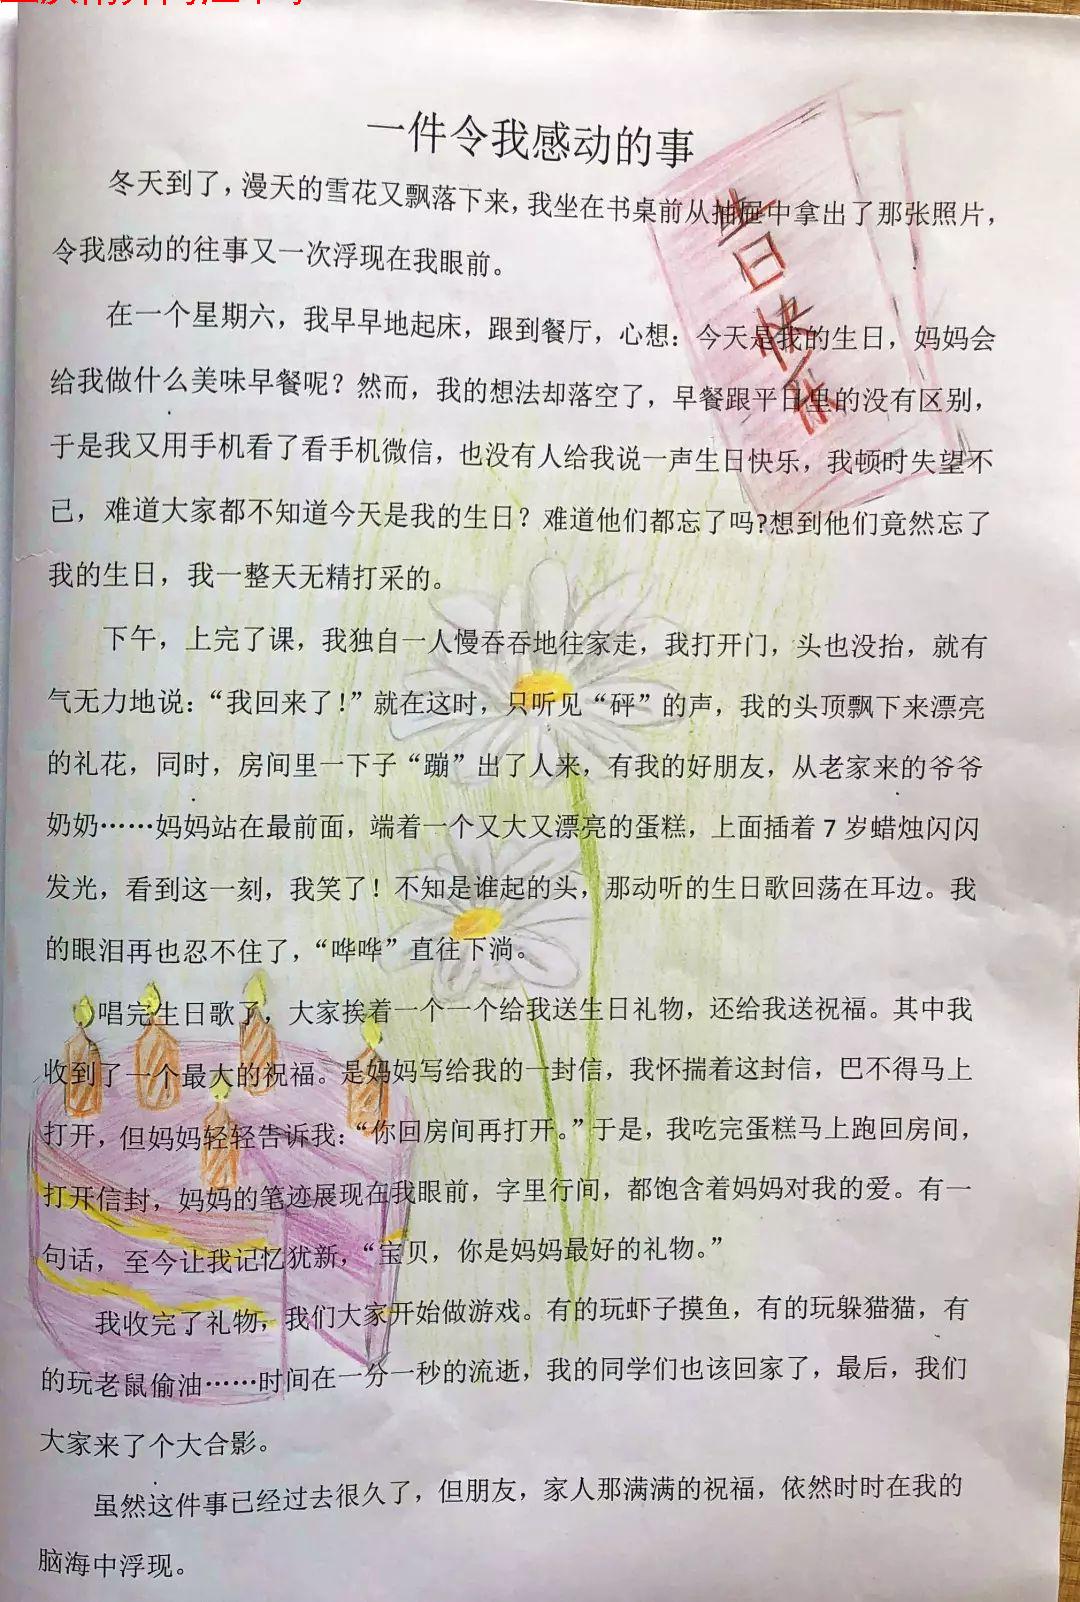 一件令我感动的事
冬天到了，漫天的雪花又飘落下来，我坐在书桌前从抽屉中拿出了那张照片，
令我感动的往事又一次浮现在我眼前。
在一个星期六，我早早地起床，跟到餐厅，心想：今天是我的生日，妈妈会
给我做什么美味早餐呢？然而，我的想法却落空了，早餐跟平日里的没有区别，
于是我又用手机看了看手机微信，也没有人给我说一声生日快乐，我顿时失望不
己，难道大家都不知道今天是我的生日？难道他们都忘了吗?想到他们竟然忘了
我的生日，我一整天无精打采的。
下午，上完了课，我独自一人慢吞吞地往家走，我打开门，头也没抬，就有
气无力地说：“我回来了！”就在这时，只听见“砰”的声，我的头顶飘下来漂亮
的礼花，同时，房间里一下子“蹦”出了人来，有我的好朋友，从老家来的爷爷
奶奶……妈妈站在最前面，端着一个又大又漂亮的蛋糕，上面插着 7 岁蜡烛闪闪
发光，看到这一刻，我笑了！不知是谁起的头，那动听的生日歌回荡在耳边。我
的眼泪再也忍不住了，“哗哗”直往下淌。
唱完生日歌了，大家挨着一个一个给我送生日礼物，还给我送祝福。其中我
收到了一个最大的祝福。是妈妈写给我的一封信，我怀揣着这封信，巴不得马上
打开，但妈妈轻轻告诉我：“你回房间再打开。”于是，我吃完蛋糕马上跑回房间，
打开信封，妈妈的笔迹展现在我眼前，字里行间，都饱含着妈妈对我的爱。有一
句话，至今让我记忆犹新，“宝贝，你是妈妈最好的礼物。”
我收完了礼物，我们大家开始做游戏。有的玩虾子摸鱼，有的玩躲猫猫，有
的玩老鼠偷油……时间在一分一秒的流逝，我的同学们也该回家了，最后，我们
大家来了个大合影。
虽然这件事已经过去很久了，但朋友，家人那满满的祝福，依然时时在我的
脑海中浮现。
生日快乐